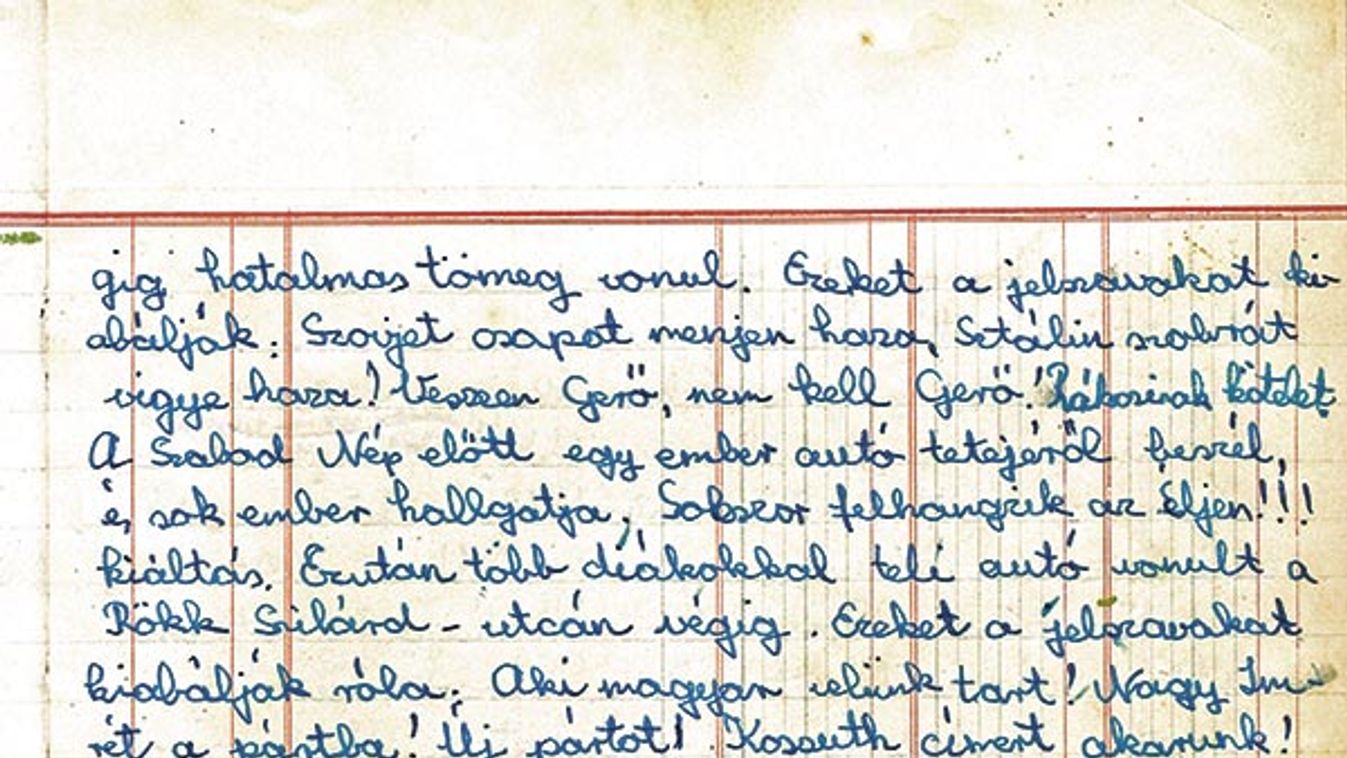 gig hatalmas tömeg vonul. Ezeket a jelszavakat ki-
abálják: Szovjet csapat menjen haza, Sztálin szobrát
vigye haza! Vesszen Gerő, nem kell Gerő! Rákosinak kötelet
A Szabad Nép előtt egy ember autó tetejéről beszél,
és sok ember hallgatja, Sokszor felhangzik az éljen!!!
kiáltás. Ezután több diákokkal teli autó vonult a
Rökk Szilárd - utcán végig. Ezeket a jelszavakat
kiabálják róla: Aki magyar velünk tart! Nagy Im-
rét a pártba! Új pártot! Kossuth címert akarunk!